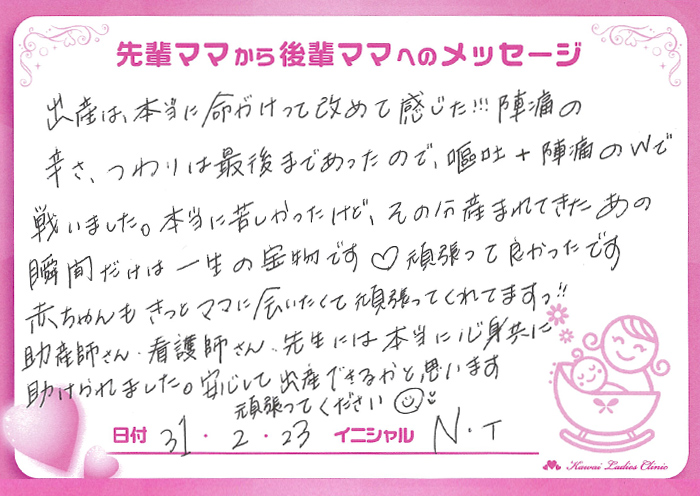 先輩ママから後輩ママへのメッセージ
出産は、本当に命がけって改めて感じた!!! 陣痛の
辛さ、つわりは最後まであったので、嘔吐+陣痛のWで
戦いました。本当に苦しかったけど、その分産まれてきたあの
瞬間だけは一生の宝物です♡頑張って良かったです
赤ちゃんもきっとママに会いたくて頑張ってくれてますっ!!
助産師さん、看護師さん、先生には本当に心身共に
助けられました。安心して出産できるかと思います
頑張ってください
日付 31・2・23 イニシャル N・T
Kawai Ladies Clinic